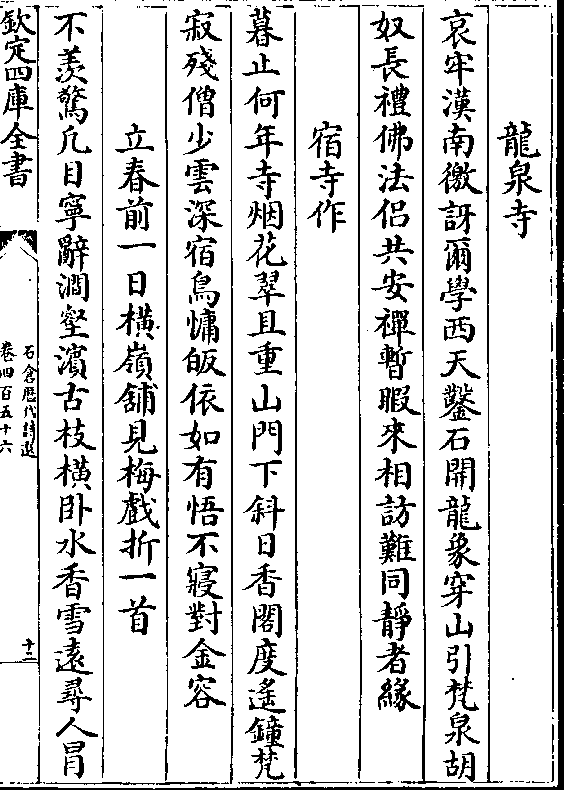 龍泉寺
哀牢漢南徼訝爾學西天鑿石開龍象穿山引梵泉胡
奴長禮佛法侣共安禪暫暇來相訪難同靜者緣
宿寺作
暮止何年寺烟花翠且重山門下斜日香閣度遙鐘梵
寂殘僧少雲深宿鳥慵皈依如有悟不寢對金容
立春前一日橫嶺舖見梅戲折一首
不羡驚凡目寧辭澗壑濱古枝橫卧水香雪遠尋人冐
欽定四庫全書
石倉歷代詩選
卷四百五十六
十二